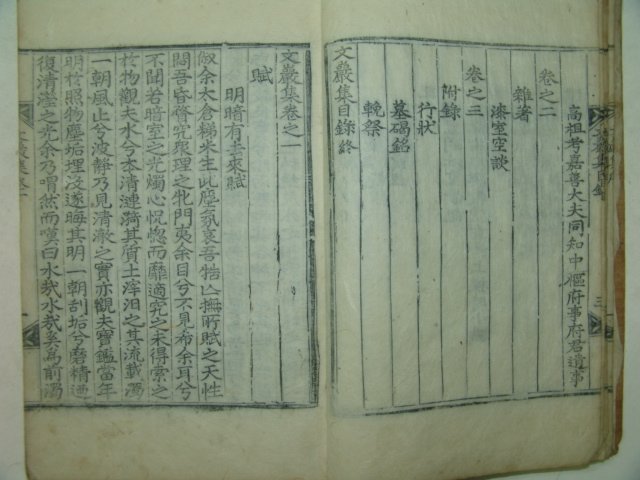 高祖考嘉善大夫同知中樞府事府君遺事
卷之二
雜著
漆室空談
卷之三
附錄
行狀
墓碣銘
輓祭
文巖集目錄終
文巖集卷之一
賦
明暗有去來賦
余太倉梯米生此塵氛哀吾牿亡撫所賦之天性
闊吾昏眘究衆理之牝門夷余目兮不見希余耳兮
不聞若暗室之光燭心怳惚而靡適究之未得索之
於物觀夫水兮本清漣漪其質土滓汩之其流載濁
一朝風止兮波靜乃見清澈之實亦觀夫寶鑑當年
明於照物塵垢埋沒遂晦其明一朝刮垢兮磨精迺
復清瀅之光余乃喟然而嘆曰水哉水哉奚爲前濁